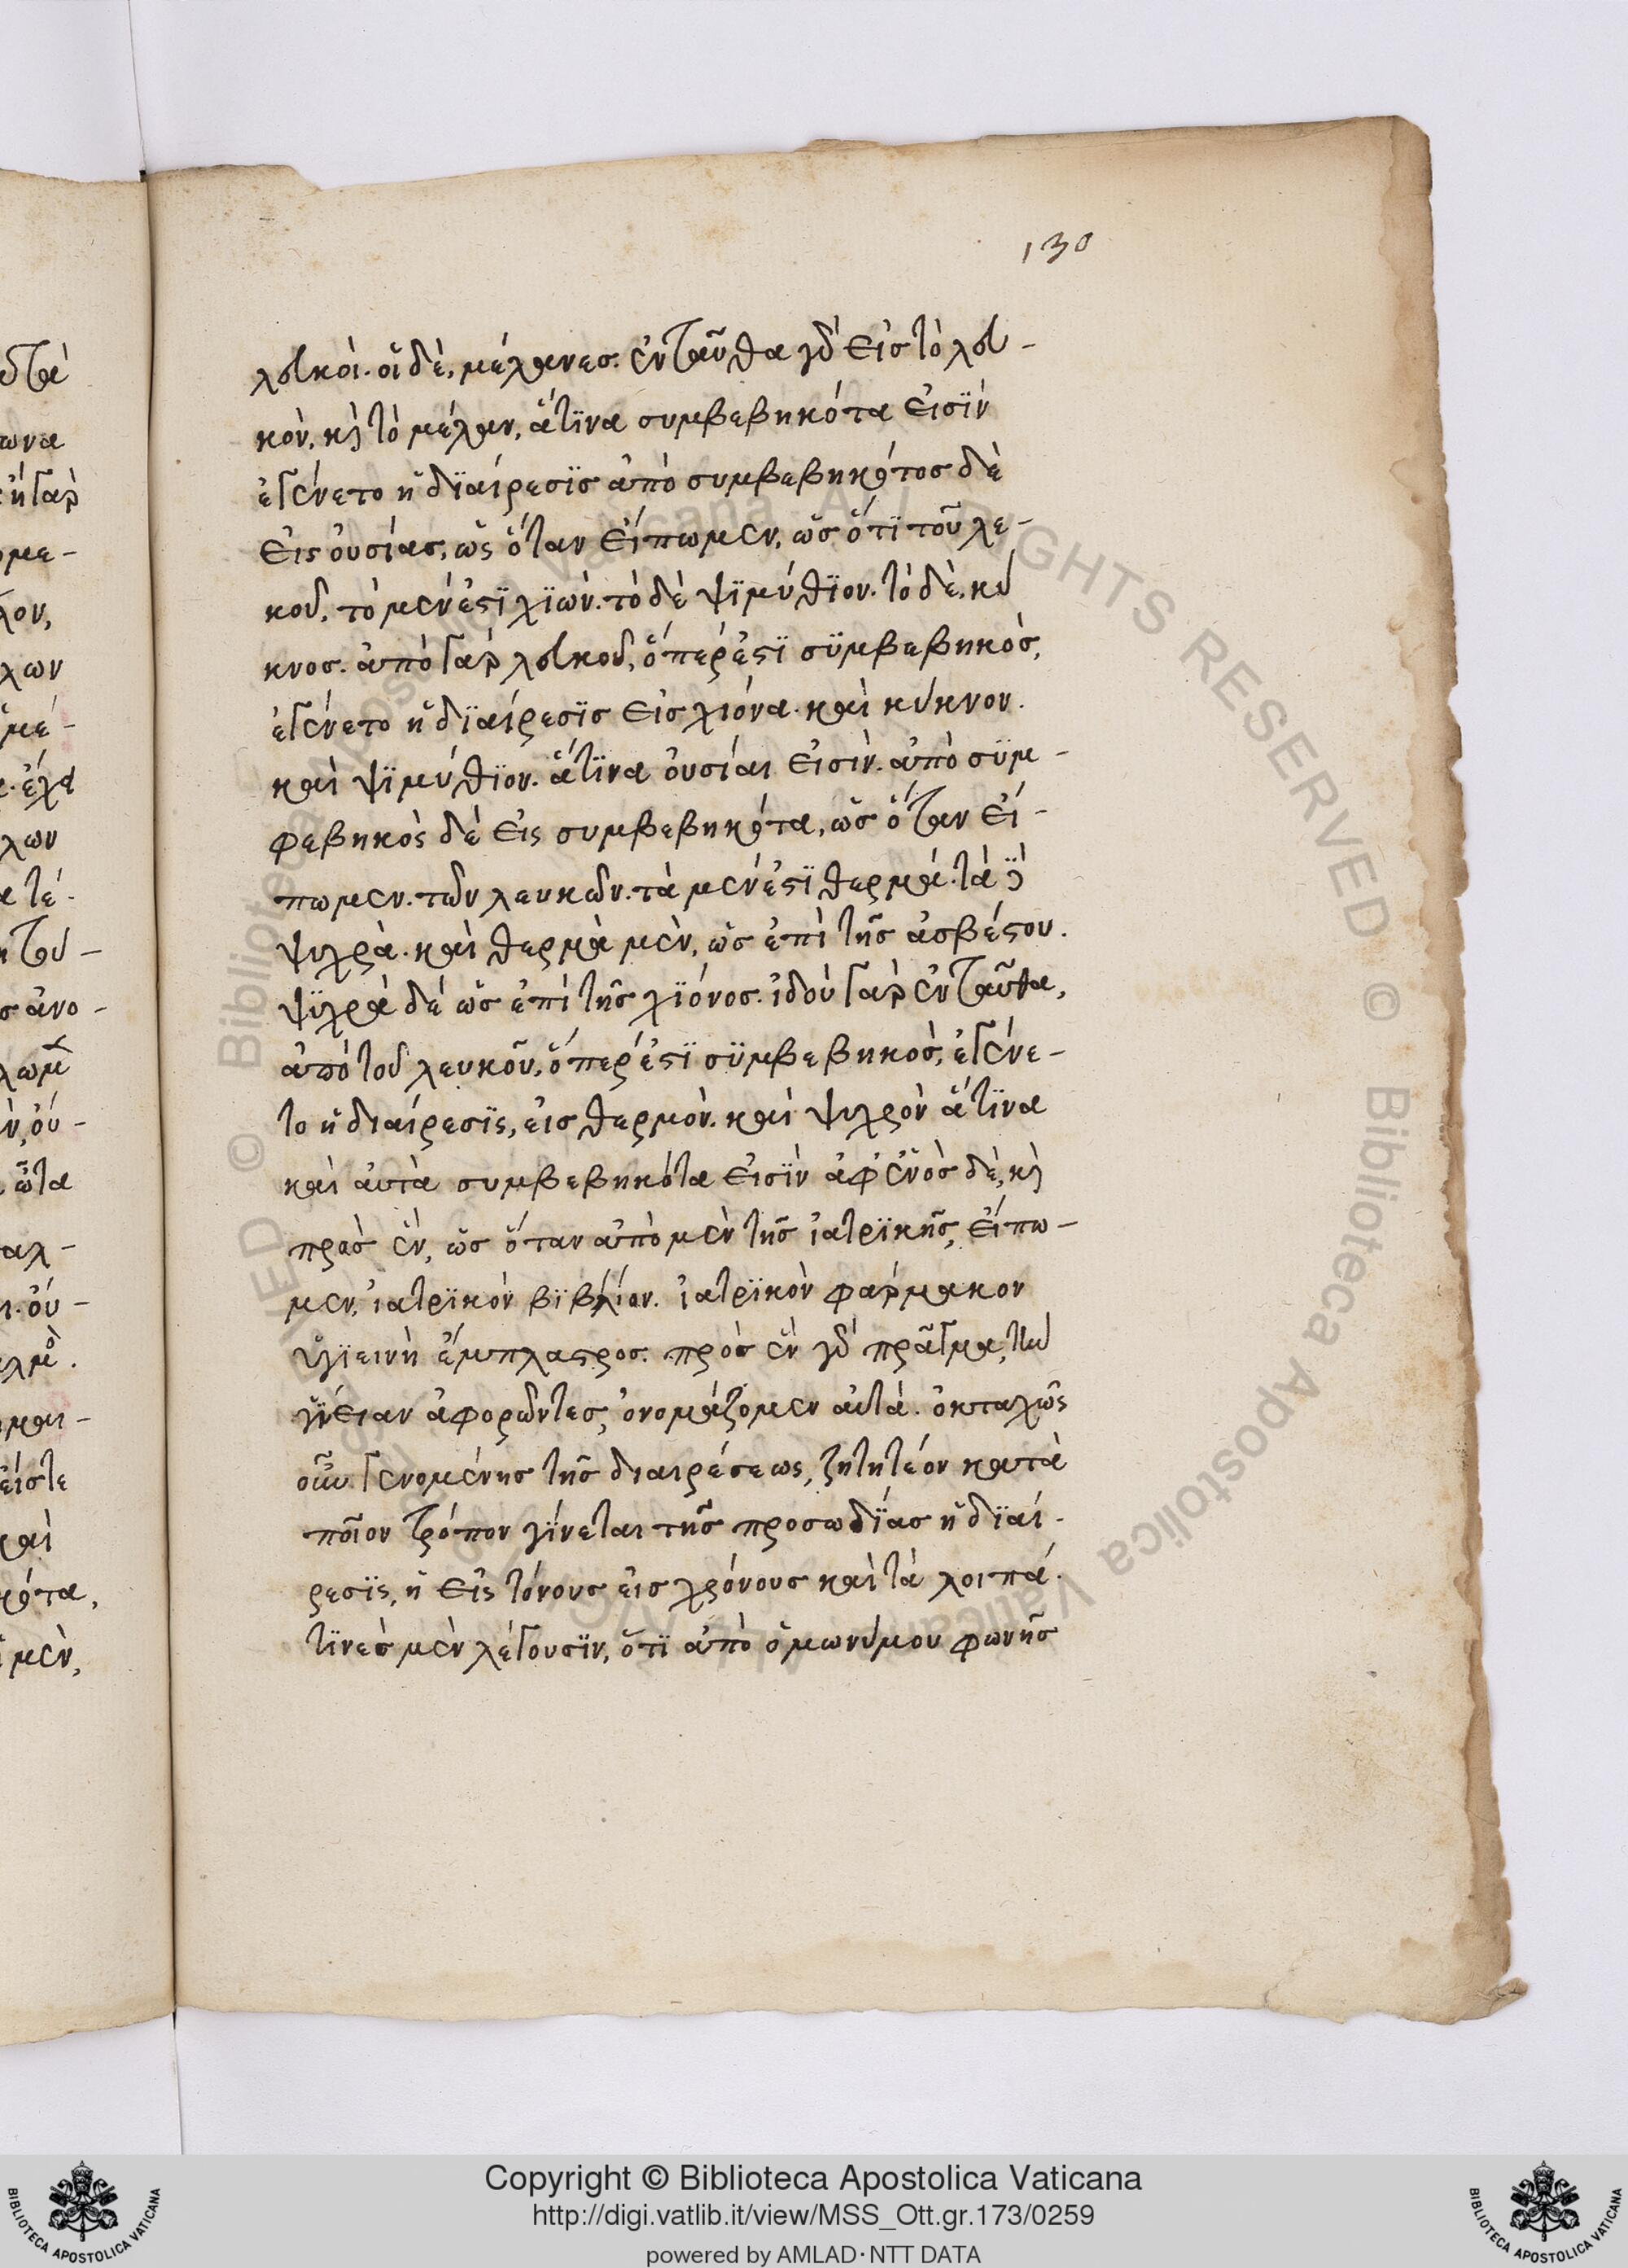 130
λευκοὶ. οἱ δὲ, μέλανες. ἐνταῦθα γὰρ εἰς τὸ λευ-
κὸν, καὶ τὸ μέλαν, ἅτϊνα συμβεβηκότα εἰσῒν
ἐγένετο ἡ δϊαίρεσϊς ἀπὸ συμβεβηκότος δὲ
εἰς οὐσίας, ὡς ὅταν εἴπωμεν, ὡς ὅτϊ τοῦ λε-
κοῦ, τὸ μὲν ἐστϊ χϊὼν. τὸ δὲ ψϊμύθϊον. τὸ δὲ, κύ
κνος. ἀπὸ γὰρ λευκοῦ, ὅπερ ἐστϊ σϋμβεβηκὸς,
ἐγένετο ἡ δϊαίρεσϊς εἰς χιόνα. καὶ κύκνον.
καὶ ψϊμύθϊον. ἅτϊνα οὐσίαι εἰσὶν. ἀπὸ σϋμ-
φεβηκὸς δὲ εἰς συμβεβηκότα, ὡς ὅταν εἴ-
πωμεν. τῶν λευκῶν. τὰ μὲν ἐστϊ θερμά. τὰ δὲ
ψυχρὰ. καὶ θερμὰ μὲν, ὡς ἐπὶ τῆς ἀσβέστου.
ψϋχρὰ δὲ ὡς ἐπὶ τῆς χϊόνος. ἰδοὺ γὰρ ἐνταῦθα,
ἀπὸ τοῦ λευκοῦ, ὅπερ ἐστϊ σϋμβεβηκὸς, ἐγένε-
το ἡ διαίρεσϊς, εἰς θερμὸν. καὶ ψυχρὸν ἅτϊνα
καὶ αὐτὰ συμβεβηκότα εἰσῒν ἀφ' ἑνὸς δὲ, καὶ
πρὸς ἓν, ὡς ὅταν ἀπὸ μὲν τῆς ἰατρϊκῆς, εἴπω-
μεν, ἰατρϊκὸν βϊβλίον. ἰατρϊκὸν φάρμακον
ὑγϊεινὴ ἔμπλαστρος. πρὸς ἓν γὰρ πρᾶγμα, τὴν
ὑγΐειαν ἀφορῶντες, ὀνομάζομεν αὐτά. ὀκταχῶς
οὖν γενομένης τῆς διαιρέσεως, ζητητέον κατὰ
ποῖον τρόπον γΐνεται τῆς προσωδΐας ἡ δϊαί-
ρεσϊς, ἡ εἰς τόνους εἰς χρόνους καὶ τὰ λοιπά.
τϊνὲς μὲν λέγουσϊν, ὅτϊ ἀπὸ ὁμωνύμου φωνῆς
Copyright © Biblioteca Apostolica Vaticana
http://digi.vatlib.it/view/MSS_Ott.gr.173/0259
powered by AMLAD·NTT DATA